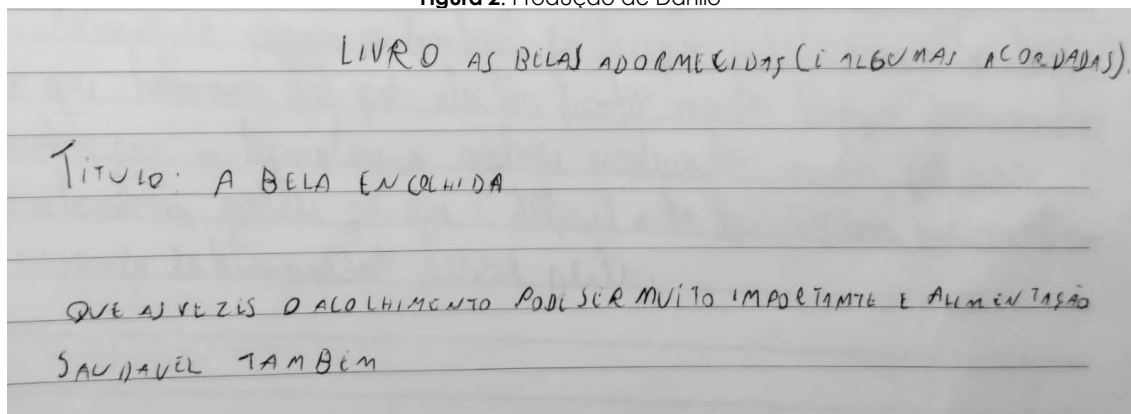 Figura 2. Produção de Danilo
LIVRO AS BELAS ADORMECIDAS (i ALGUMAS ACORDADAS).
TiTULO: A BELA ENCOLHIDA
QUE AS VEZES O ACOLHIMENTO PODE SER MUiTO IMPORTAMTE E ALIMENTASÃO
SAUDAVEL TAMBEM